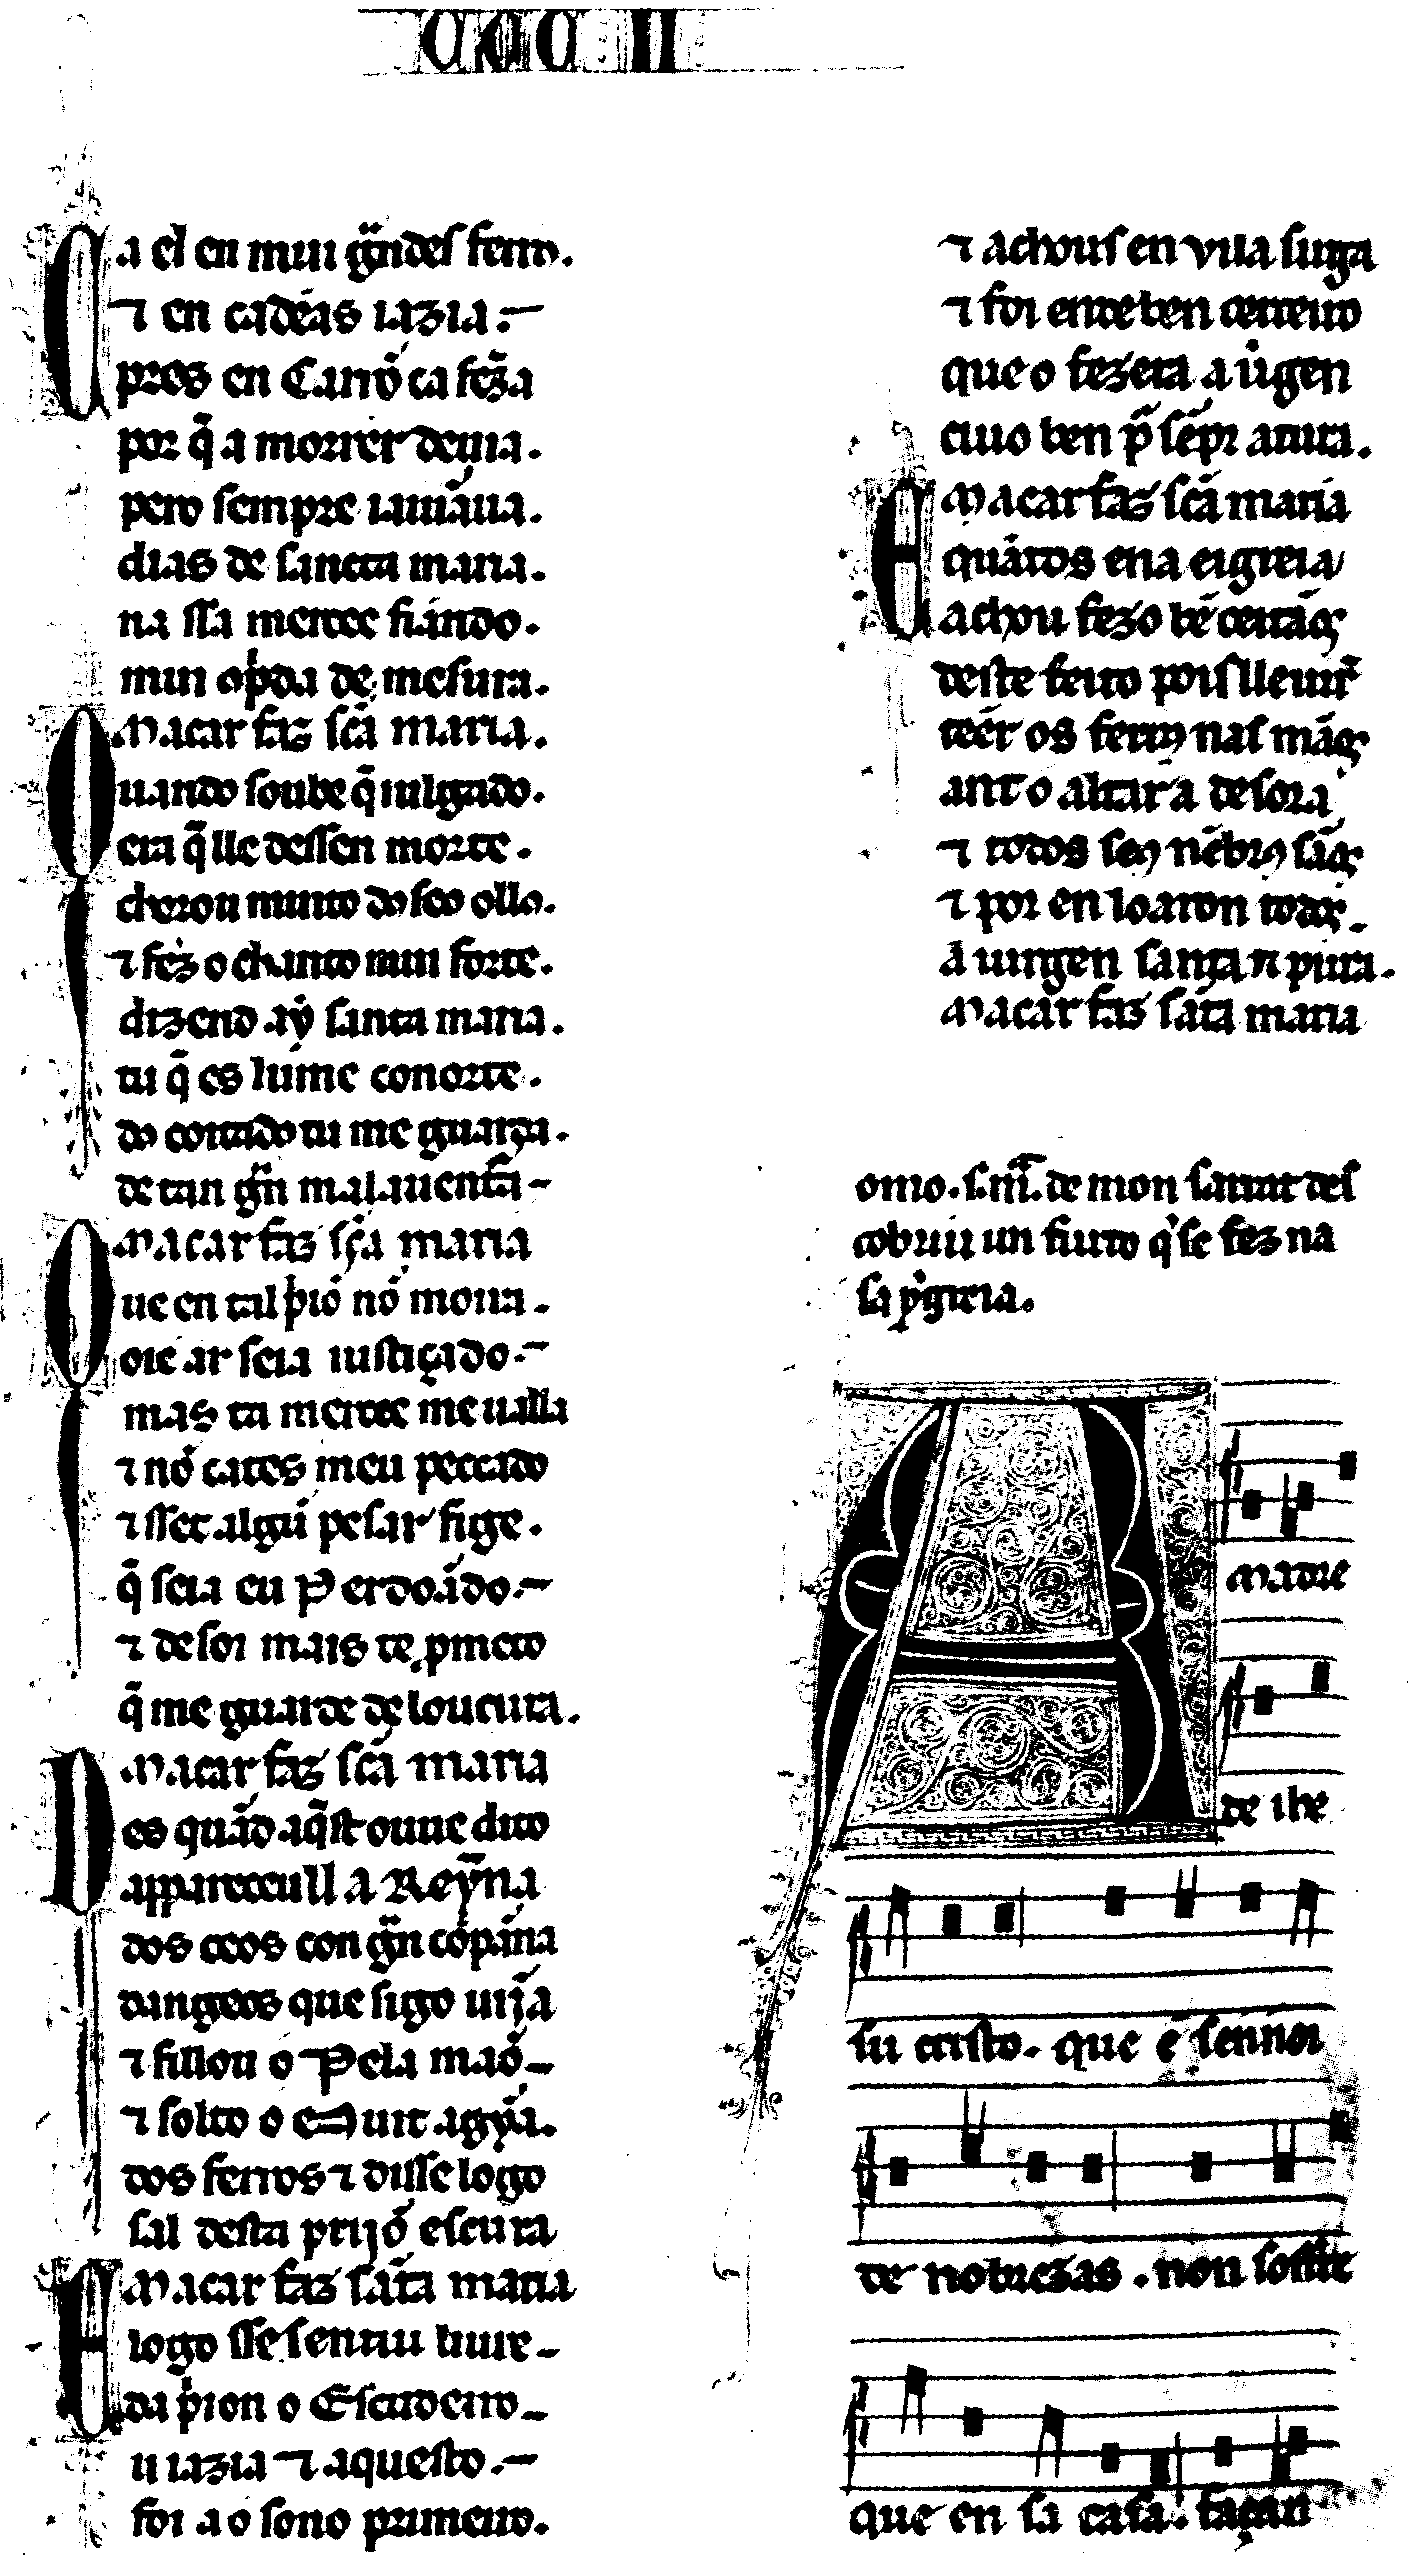 CCC II
Ca el en mui g̃ndes ferros.
⁊ en cadẽas iazia.
pros en Carrõ ca fez̃a
por q̃ a morrer deuia.
pero sempre iaiũaua.
dias de sancta maria.
na ssa mercee fiando.
mui cõp̃da de mesura.
Macar faz sc̃a maria.
Quando soube q̃ iulgado.
era q̃ lle dessen morte.
chorou muito dos seo ollos.
⁊ fez o chanto mui forte.
dizend ay santa maria.
tu q̃ es lume conorte.
do coitado tu me guarda.
de tan g̃n malauent̃a
Macar faz sc̃a maria
Que en tal p̃iõ nõ moira.
oie ar seia iustiçado.
mas ta mercee me ualla
⁊ nõ cates meu peccado
⁊ sset algũ pesar fige.
q̃ seia eu perdoãdo.
⁊ desoi mais te pmeto
q̃ me guarde de loucura.
Macar faz sc̃a maria
Des quãd aq̃st ouue dito
appareceull a Reỹna
dos ceos con g̃n cõpãna
dangeos que sigo uĩja
⁊ fillou o pela mão
⁊ solto o e quit agỹa.
dos ferros ⁊ disse logo
sal desta prijõ escura
Macar faz sãta maria
E logo sse sentiu liure
da p̃ion o Escudeiro
u iazia ⁊ aquesto.
foi a o sono primeiro.
⁊ achous en vila sirga
⁊ foi ente ben certeiro
que o fezera a uirgen
cuio ben p̃ sẽpr atura.
Macar faz sc̃a maria
E quãtos ena eigreia
achou fezo bẽ certãos
deste feito pois lleuar̃
teer os ferros nas mãos
ant o altar a de sora
⁊ todos seos nẽbros sãos
⁊ por en loaron todos.
a uirgen santa ⁊ pura.
Macar faz sãta maria
omo. s. m. de mon sarrat des
cobriu un furto q̃ se fez na
sa ygreia.
A Madre
de ihe
su cristo. que e sennor
de nobrezas. non soffre
que en sa casa. façan